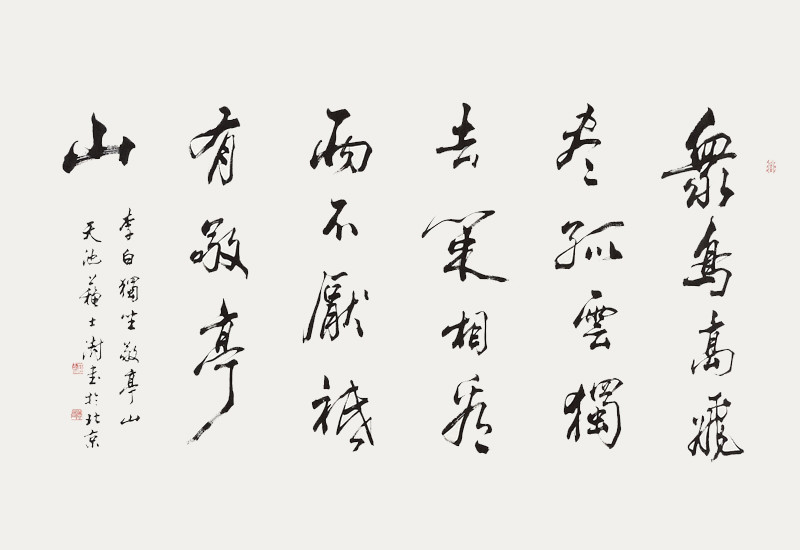 衆鳥高飛
尽孤雲獨
去閑相看
兩不厭祗
有敬亭
山
李白獨坐敬亭山
天池蘇士澍書於北京